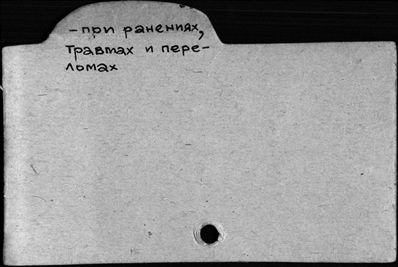 - при ранениях,
травмах и пере-
ломах